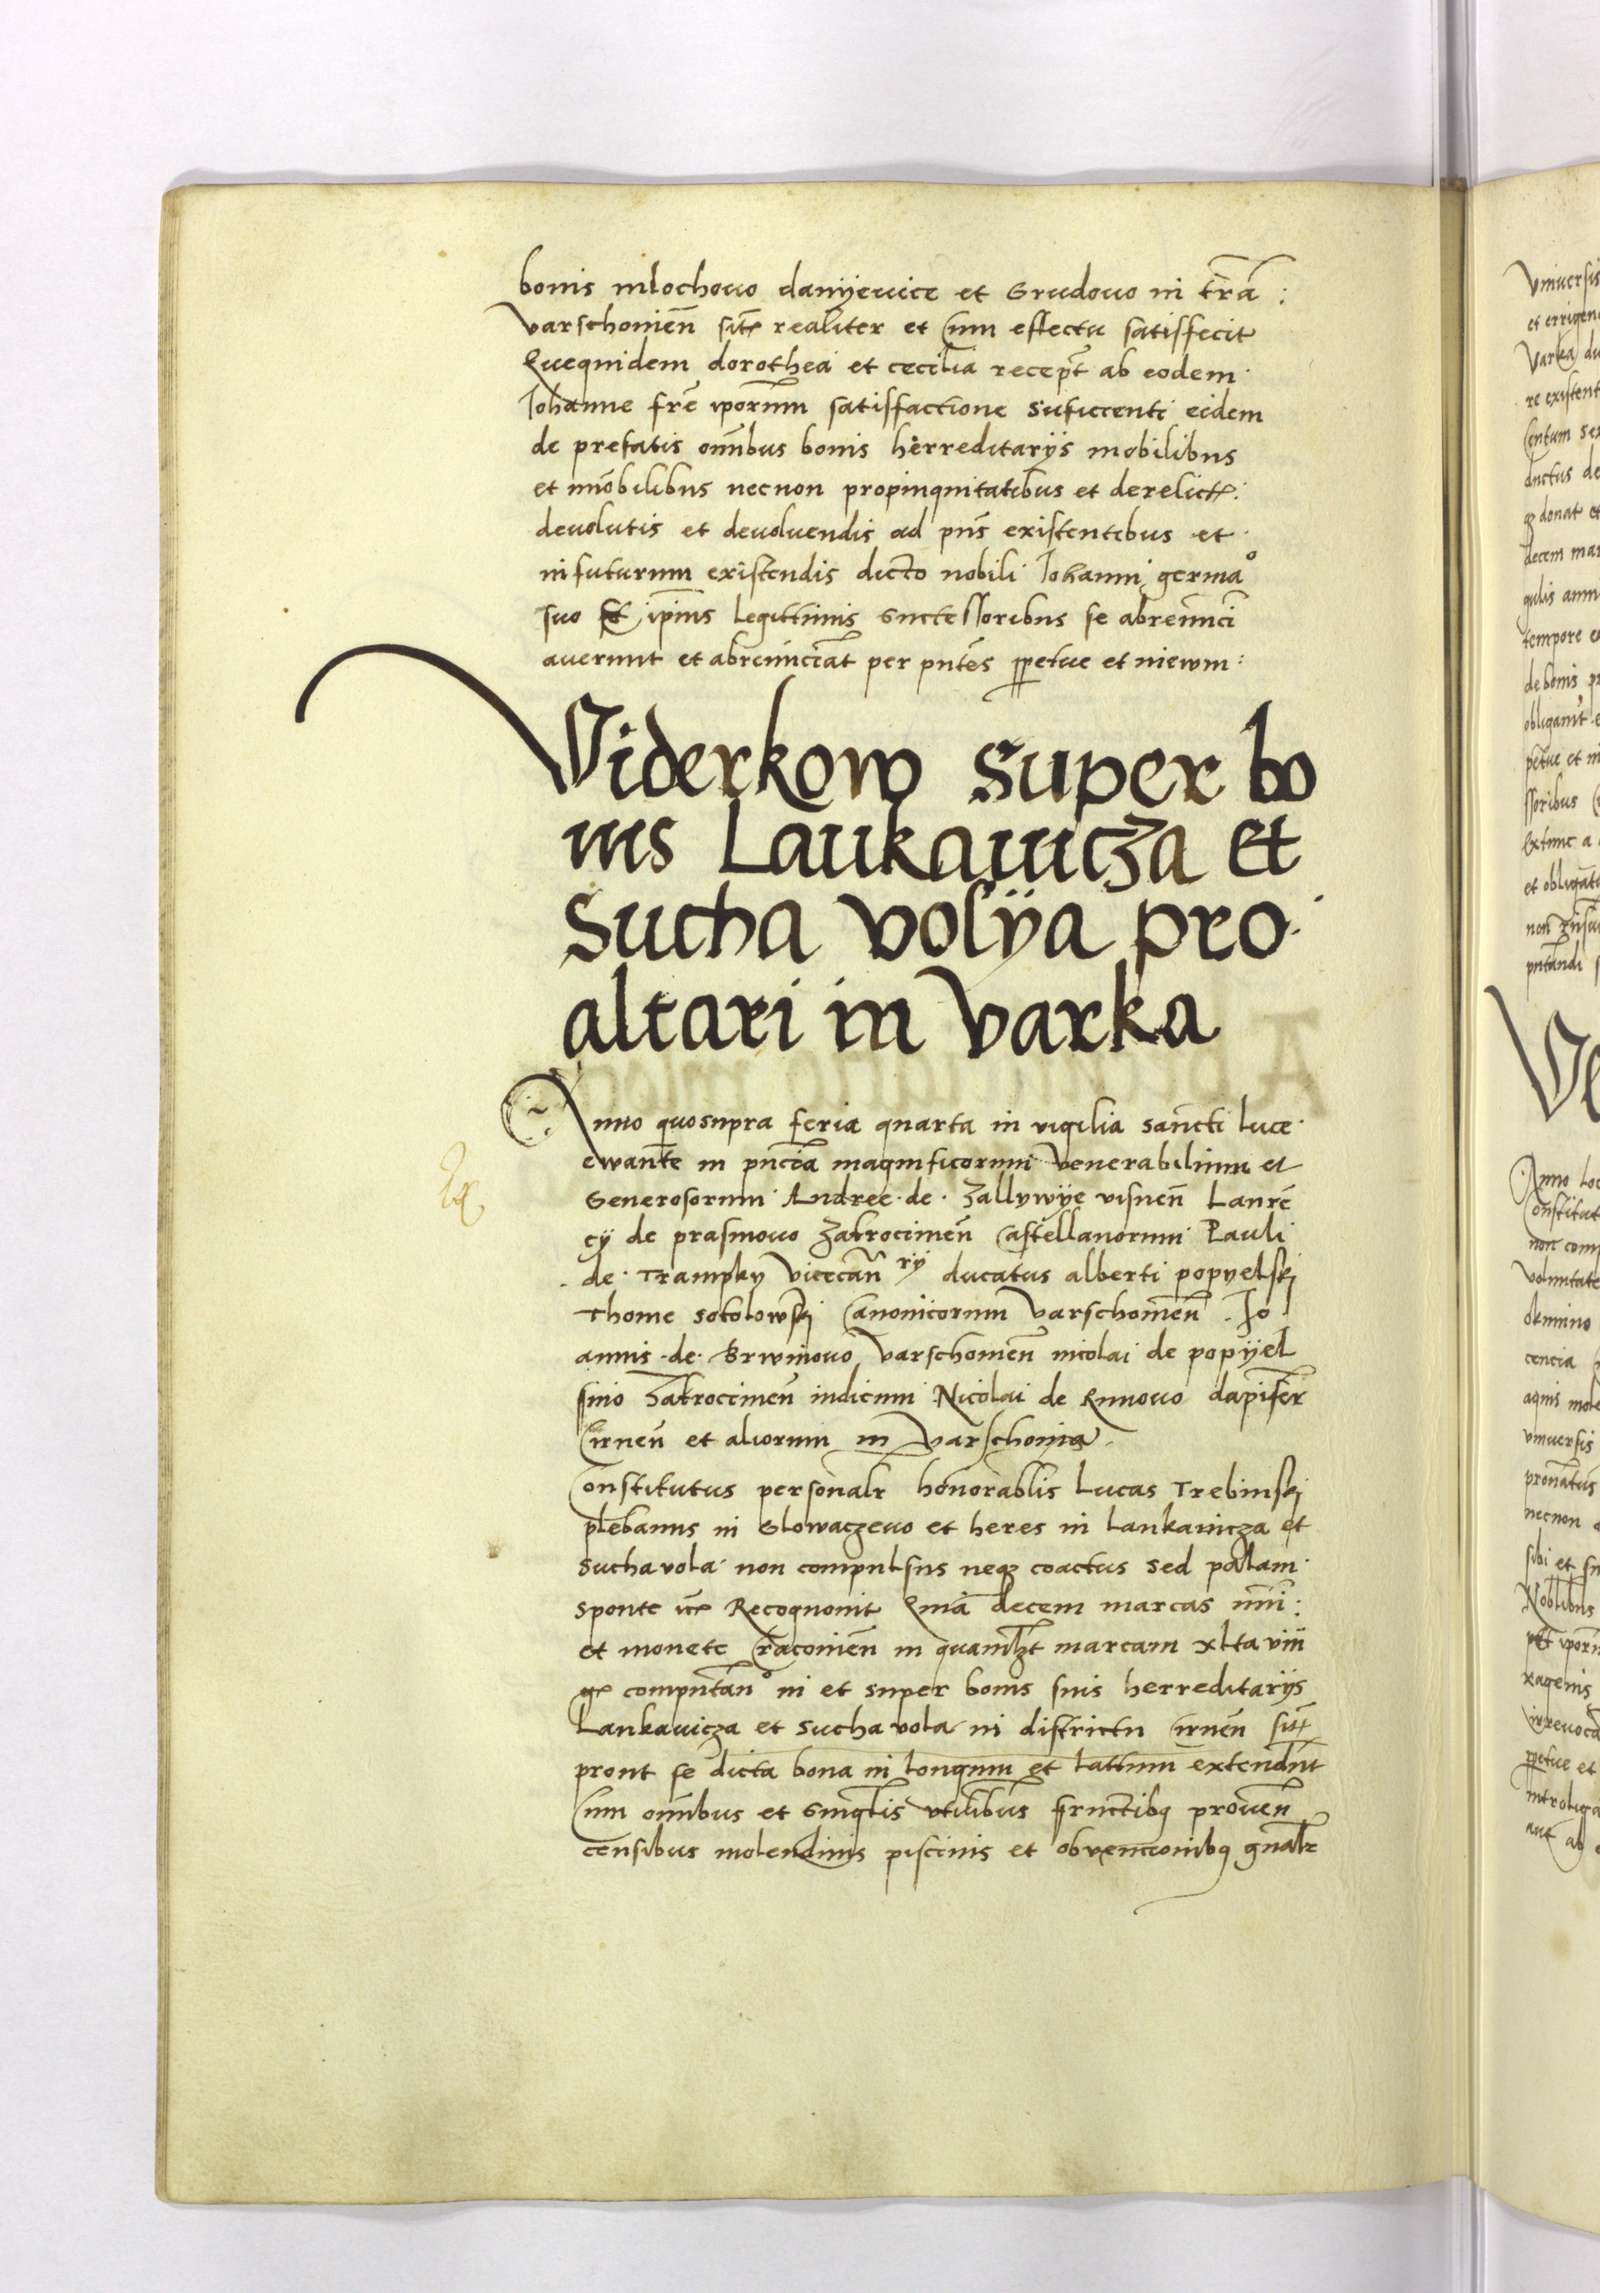 bonis mlochowo danyewice et Grudowo in t̄rā:
Varschonien̄ sitꝭ realiter et Cum effectu satisfecit
Quequidem dorothea et cecilia recep̄t ab eodem
Iohanne fr̄e ip̄orum satisfactione suficcenti eidem
de prefatis om̄ibus bonis herreditarijs mobilibus
et im̄obilibus necnon propinquitatibus et derelictꝭ:
devolutis et devoluendis ad pn̄s existentibus et
in futurum existendis dicto nobili Iohanni germāº
suo Et ip̄ius legittimis Successoribus se abrenūcī
averunt et abrenūciāt per pn̄tes ꝑpetue et in ewm:
Viderkow super bo
nis Laukawicza et
Sucha volÿa pro
altari in Varka
Anno quosupra feria quarta in vigilia sancti luce
ewan̄te in pn̄cia magnificorum Venerabilium et
Generosorum Andree de Zallywÿe visnen̄ Laurē
cÿ de prasmowo Zatrocimen̄ Castellanorum Pauli
de Trampky Vicecan̄rÿ ducatus alberti popyelski
Thome Sokolowski Canonicorum Varschonien̄ Io
annis de Brwinowo Varschonien̄ nicolai de popÿel
sino Zatrocimen̄ iudicum Nicolai de Runowo dapifer̄
Cirnen̄ et aliorum in Varschonia
Constitutus personalr honorablis Lucas Trebinski
plebanus in Glowaczewo et heres in Laukawicza et
Sucha vola non compulsus neqꝫ coactus sed palam
sponte itꝭ Recognovit Quia decem marcas nūi:
et monete Cracovien̄ in quamlꝫt marcam xlta viii
gꝭ computan̄º in et super bonis suis herreditarÿs
Laukawicza et Sucha vola in districtu Cirnen̄ sitꝭ
prout se dicta bona in longum et lattum extendūt
Cum om̄ibus et Singlis vtilibus fructibꝫ proven̄
censibus molendinis piscinis et obvencionibꝫ gn̄alr